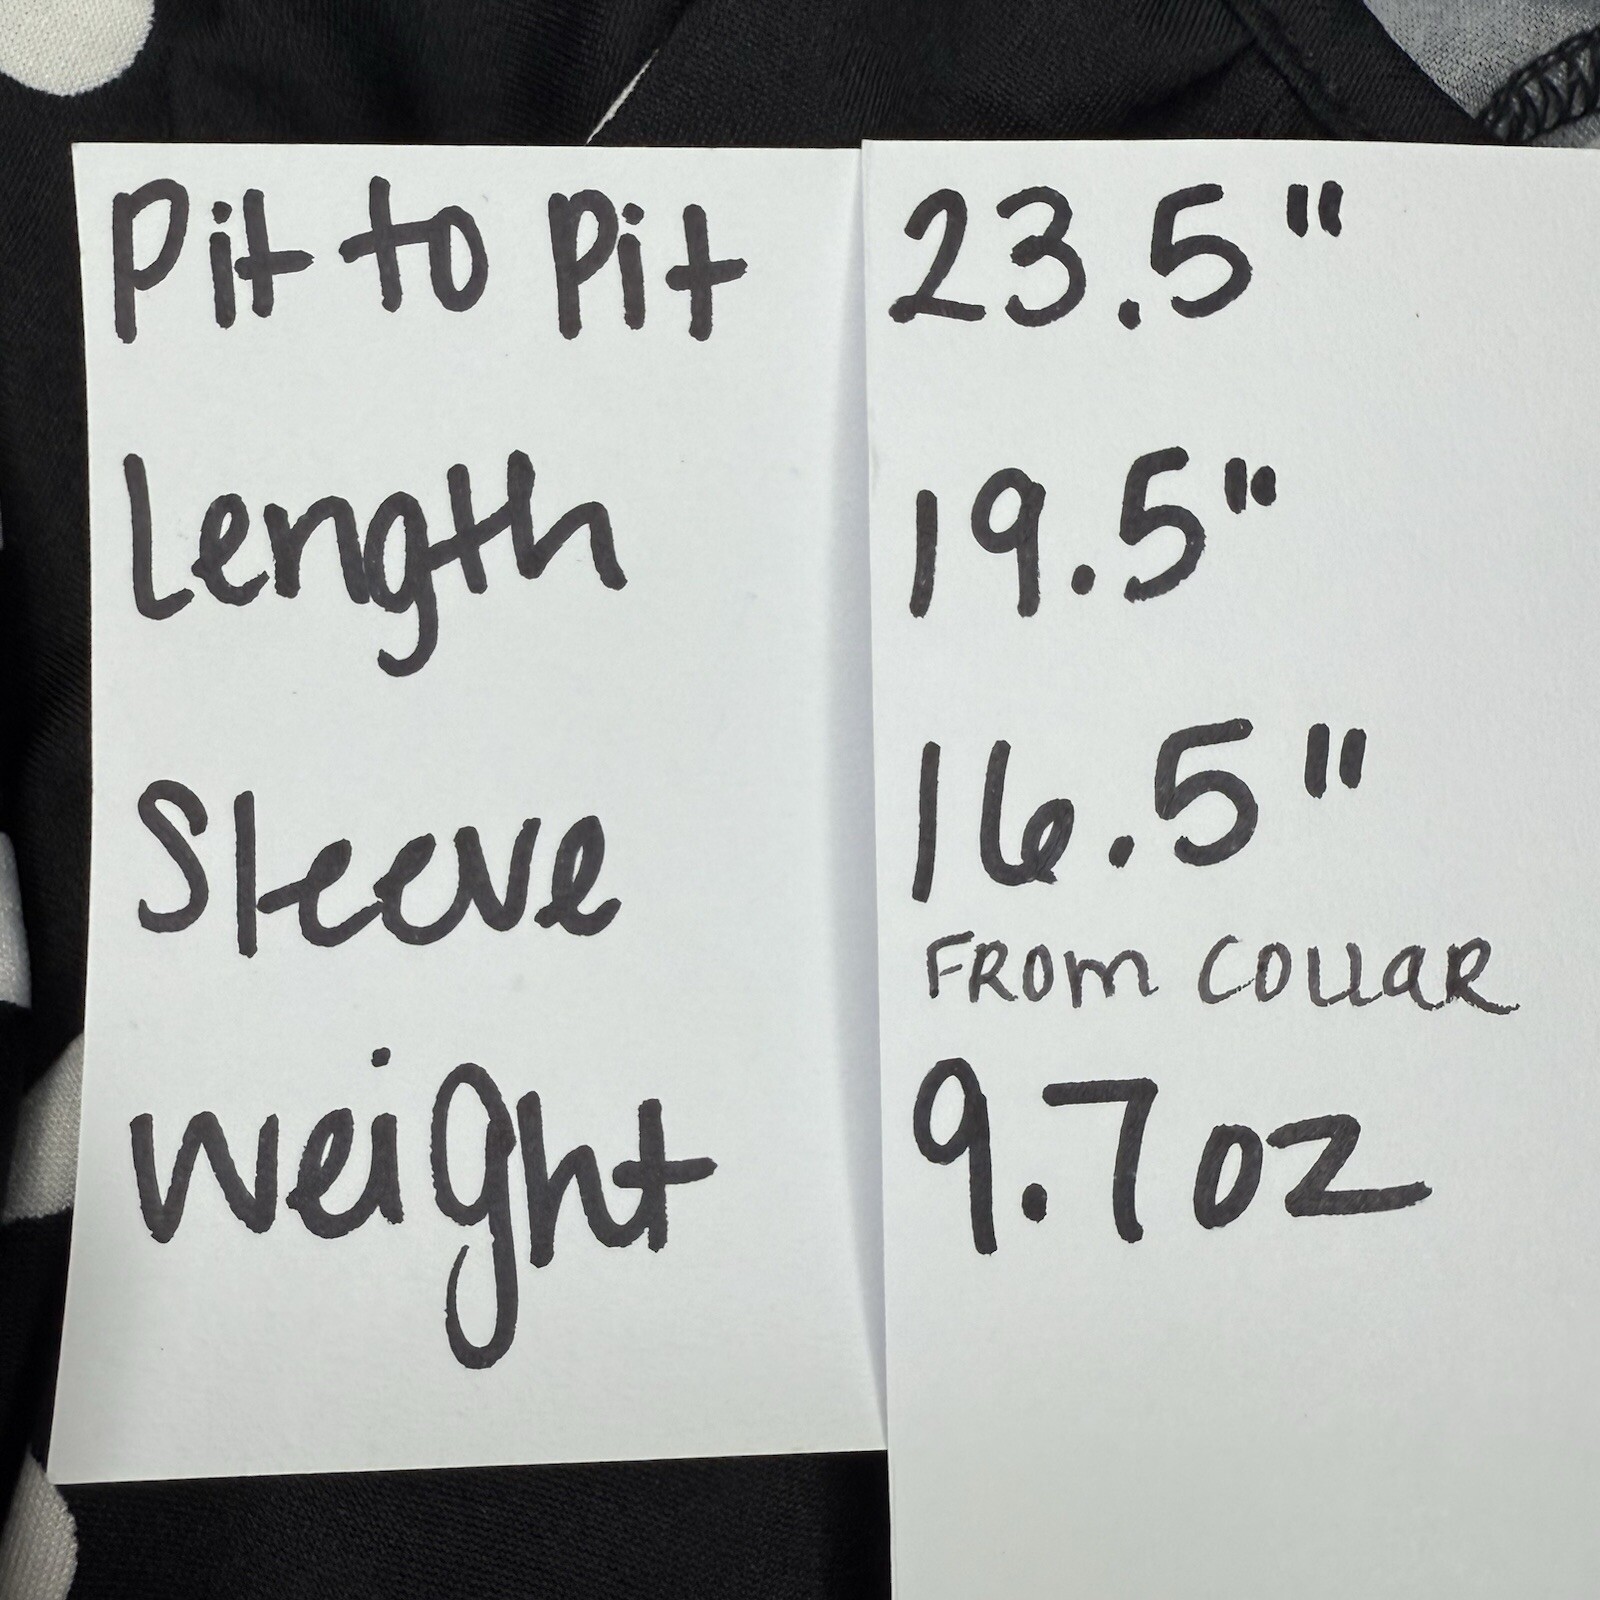 Pit to Pit 23.5"
Length 19.5"
Sleeve 16.5"
FROM COLLAR
Weight 9.7oz